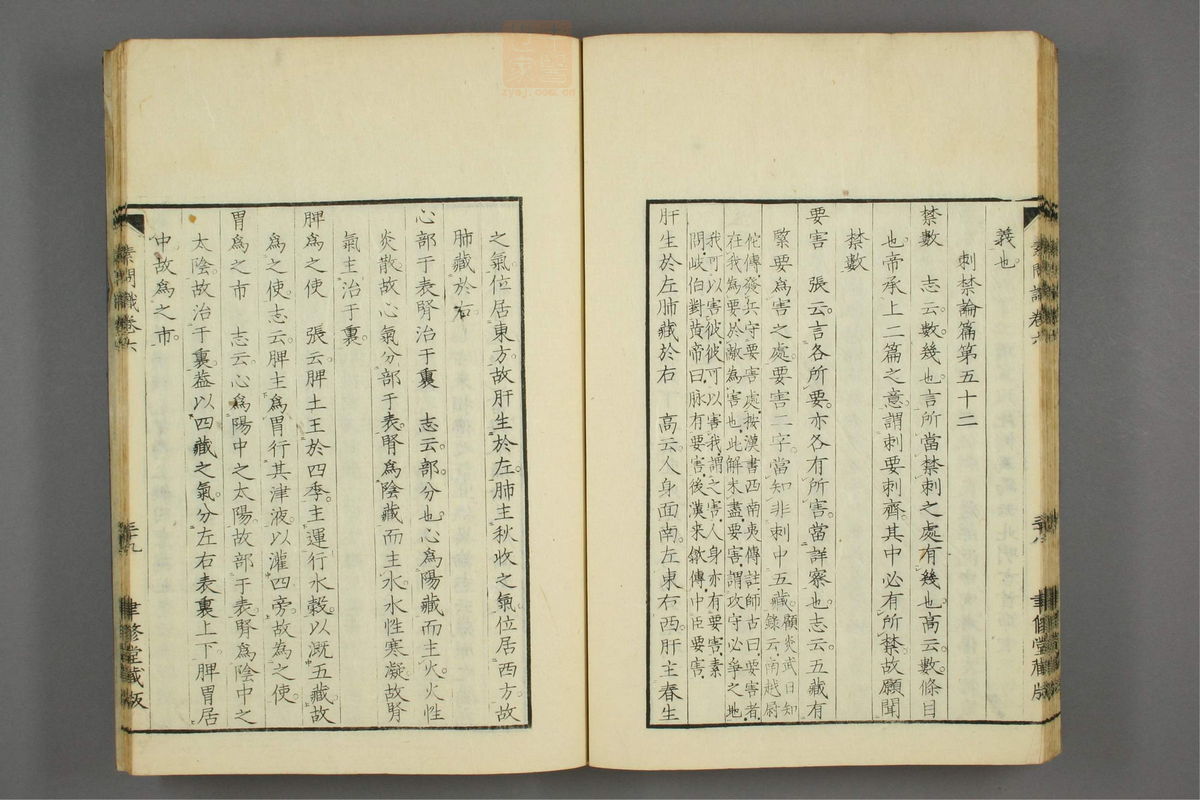 義也
刺禁論篇第五十二
禁數　志云。數。幾也。言所當禁刺之處有幾也。高云。數。條目
也。帝承上二篇之意。謂刺要刺齊。其中必有所禁。故願聞
禁數
要害　張云。言各所要。亦各有所害。當詳察也。志云。五藏有
緊要爲害之處。要害二字當知非刺中五藏。顧炎武日知
錄云。南越尉
佗傳發兵守要害處。按漢書西南夷傳註。師古曰。要害者。
在我為要。於敵為害也。此解未盡。要害。謂攻守必爭之地。
我可以害彼。彼可以害我。謂之害。人身亦有要害。素
問岐伯對黃帝曰。脉有要害。後漢來歙傳。中臣要害
肝生於左肺藏於右　高云。人身面南。左東右西。肝主春生
之氣。位居東方。故肝生於左。肺主秋收之氣。位居西方。故
肺藏於右。
心部于表腎治于裏　志云。部。分也。心爲陽藏而主火。火性
炎散。故心氣分部于表。腎爲陰藏而主水。水性寒凝。故腎
氣主治于裏。
脾爲之使　張云。脾土王於四季。主運行水穀。以溉五藏。故
爲之使。志云。脾主爲胃行其津液。以灌四旁。故爲之使。
胃爲之市　志云。心爲陽中之太陽。故部于表。腎爲陰中之
太陰。故治于裏。葢以四藏之氣。分左右表裏上下。脾胃居
中。故爲之市。
素問識卷六
三十八
聿修堂藏版
素問識卷六
三十九
聿修堂藏版
中醫世家
zysj.com.cn